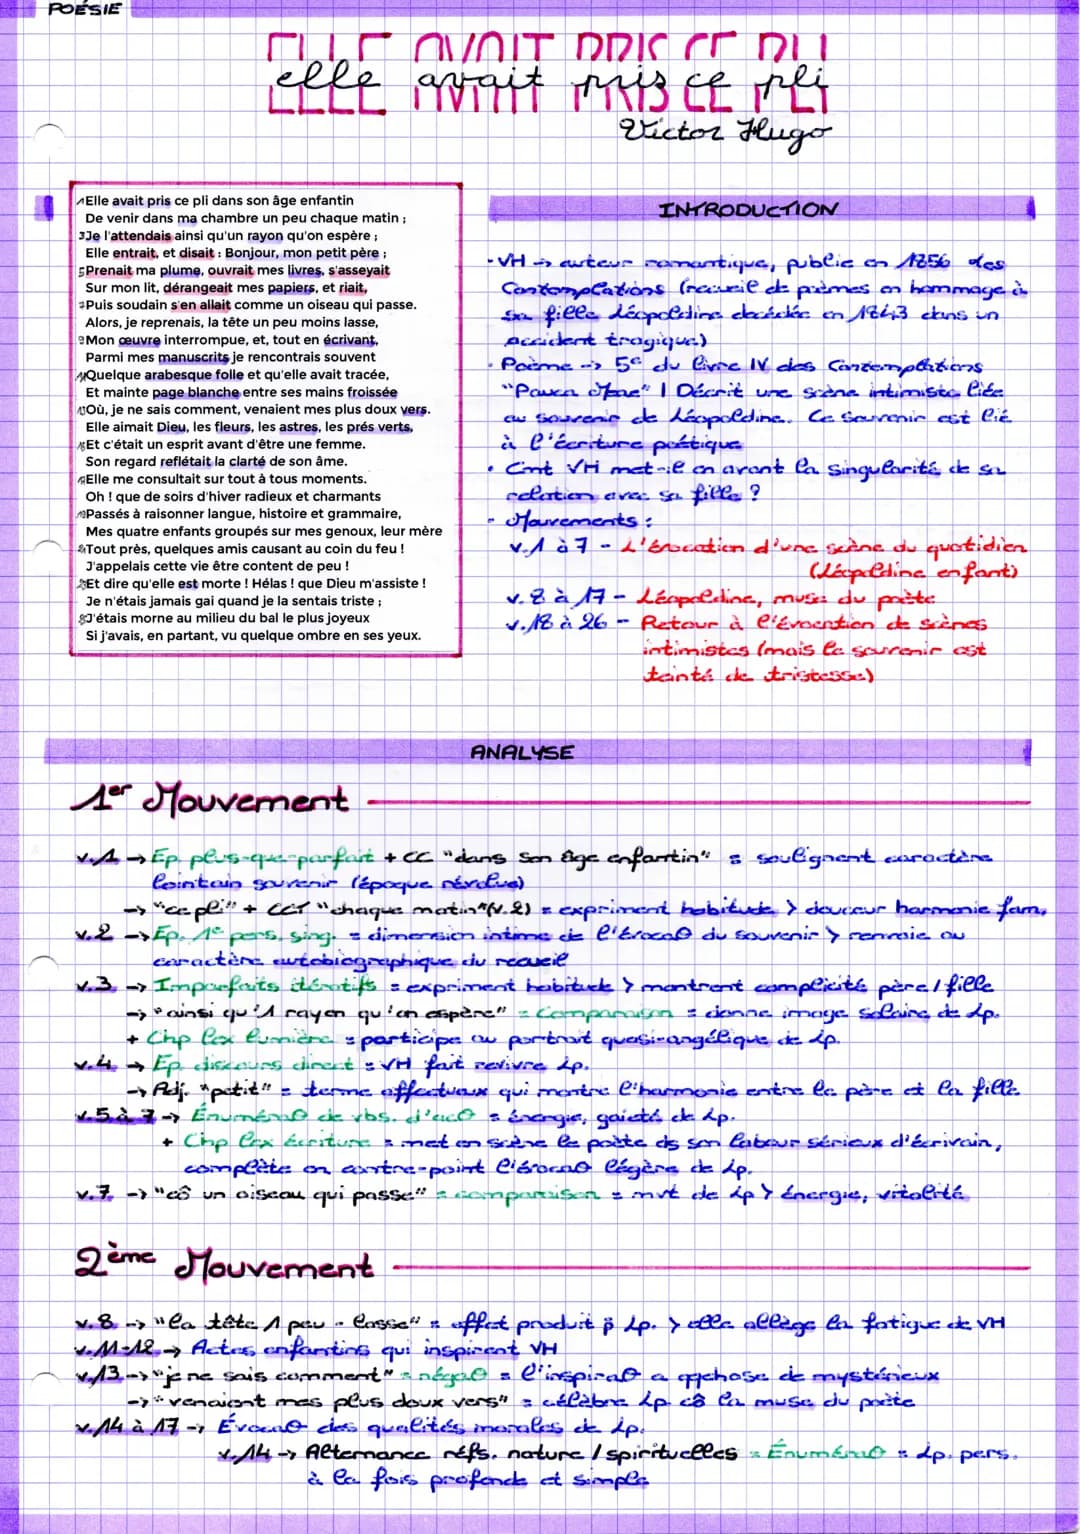 POÉSIE
ELLE AVAIT PRIS CE PLI
elle avait pris ce pli
Victor Hugo
1 Elle avait pris ce pli dans son âge enfantin
De venir dans ma chambre un peu chaque matin ;
3 Je l'attendais ainsi qu'un rayon qu'on espère ;
Elle entrait, et disait : Bonjour, mon petit père ;
5 Prenait ma plume, ouvrait mes livres, s'asseyait
Sur mon lit, dérangeait mes papiers, et riait,
7 Puis soudain s'en allait comme un oiseau qui passe.
Alors, je reprenais, la tête un peu moins lasse,
9 Mon œuvre interrompue, et, tout en écrivant,
Parmi mes manuscrits je rencontrais souvent
11 Quelque arabesque folle et qu'elle avait tracée,
Et mainte page blanche entre ses mains froissée
13 Où, je ne sais comment, venaient mes plus doux vers.
Elle aimait Dieu, les fleurs, les astres, les prés verts,
15 Et c'était un esprit avant d'être une femme.
Son regard reflétait la clarté de son âme.
17 Elle me consultait sur tout à tous moments.
Oh ! que de soirs d'hiver radieux et charmants
19 Passés à raisonner langue, histoire et grammaire,
Mes quatre enfants groupés sur mes genoux, leur mère
21 Tout près, quelques amis causant au coin du feu !
J'appelais cette vie être content de peu !
23 Et dire qu'elle est morte ! Hélas ! que Dieu m'assiste !
Je n'étais jamais gai quand je la sentais triste ;
25 J'étais morne au milieu du bal le plus joyeux
Si j'avais, en partant, vu quelque ombre en ses yeux.
INTRODUCTION
- VH -> auteur romantique, publie en 1856 des
Contemplations (recueil de poèmes en hommage à
sa fille Léopoldine décédée en 1843 dans un
accident tragique)
• Poème -> 5e du livre IV des Contemplations
"Pauca Meae" | Décrit une scène intimiste liée
au souvenir de Léopoldine. Ce souvenir est lié
à l'écriture poétique
• Cmt VH met-il en avant la singularité de sa
relation avec sa fille ?
• Mouvements :
v.1 à 7 - L'évocation d'une scène du quotidien
(Léopoldine enfant)
v. 8 à 17 - Léopoldine, muse du poète
v.18 à 26 - Retour à l'évocation de scènes
intimistes (mais le souvenir est
teinté de tristesse)
ANALYSE
1er Mouvement
v.1 -> Ep. plus-que-parfait + CC "dans son âge enfantin" = soulignent caractère
lointain souvenir (époque révolue)
-> "ce pli" + CCT "chaque matin" (v.2) = expriment habitude > douceur harmonie fam.
v.2 -> Ep. 1e pers. sing. = dimension intime de l'évocaO du souvenir > renvoie au
caractère autobiographique du recueil
v.3 -> Imparfaits itératifs = expriment habitude > montrent complicité père / fille
-> "ainsi qu'1 rayon qu'on espère" = Comparaison = donne image solaire de Lp.
+ Chp lex lumière = participe au portrait quasi-angélique de Lp.
v.4 -> Ep. discours direct = VH fait revivre Lp.
-> Adj. "petit" = terme affectueux qui montre l'harmonie entre le père et la fille
v.5 à 7 -> ÉnuméraO de vbs. d'acO = énergie, gaieté de Lp.
+ Chp lex écriture = met en scène le poète ds son labeur sérieux d'écrivain,
complète en contre-point l'évocaO légère de Lp.
v.7 -> "cô un oiseau qui passe" = comparaison = mvt de Lp > énergie, vitalité
2ème Mouvement
v.8 -> "la tête 1 peu - lasse" = effet produit p Lp. > elle allège la fatigue de VH
v.11-12 -> Actes enfantins qui inspirent VH
v.13 -> "je ne sais comment" = négaO = l'inspiraO a qqchose de mystérieux
-> "venaient mes plus doux vers" = célèbre Lp cô la muse du poète
v.14 à 17 -> ÉvocaO des qualités morales de Lp.
v.14 -> Alternance réfs. nature / spirituelles = ÉnuméraO = Lp. pers.
à la fois profonde et simple